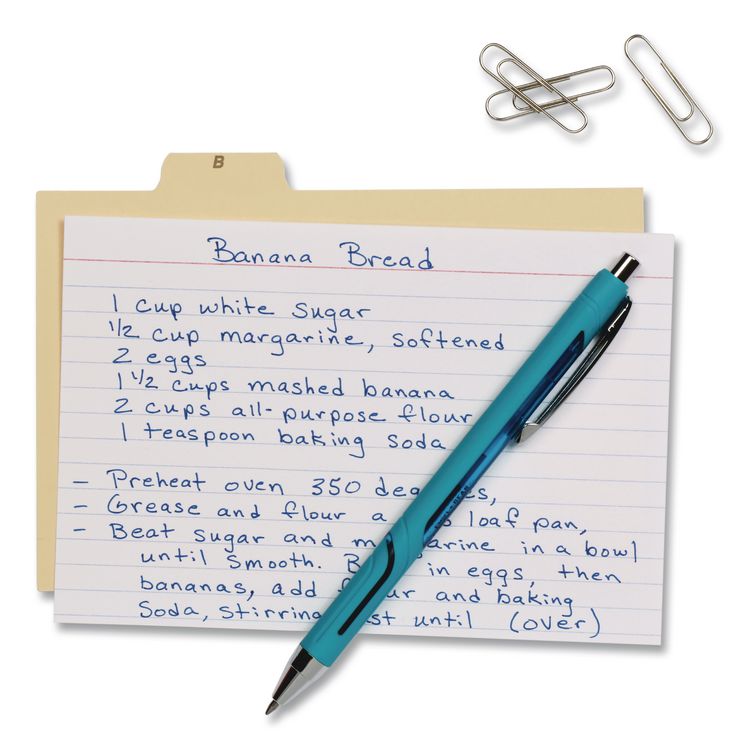 B
Banana Bread
1 cup white sugar
1/2 cup margarine, softened
2 eggs
1 1/2 cups mashed banana
2 cups all-purpose flour
1 teaspoon baking soda
- Preheat oven 350
- Grease and flour a loaf pan,
- Beat sugar and in a bowl
until smooth. in eggs, then
bananas, add and baking
soda, until (over)